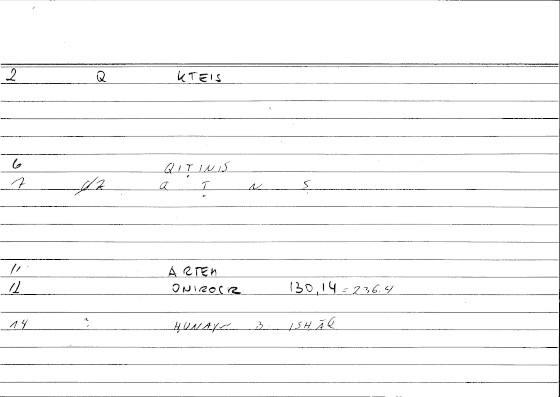 2 Q KTEIS
6 QIṬINIS
7 Q Ṭ N S
11 ARTEM
12 ONIROCR 130,14 = 236.4
14 : ḤUNAYN B ISḤĀQ